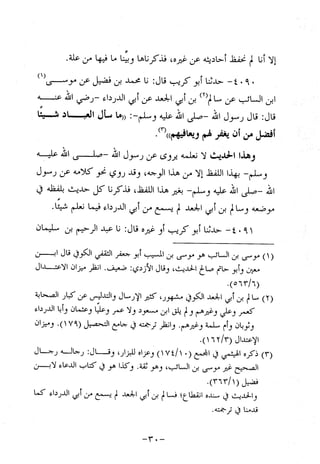 إلا أنا لم نحفظ أحاديثه عن غيره، فذكرناها وبيّنا ما فيها من علة.
٤٠٩٠- حدثنا أبو كريب قال: نا محمد بن فضيل عن موســى(١)
ابن السائب عن سالم(٢) بن أبي الجعد عن أبي الدرداء -رضي الله عــنه-
قال: قال رسول الله -صلى الله عليه وسلم-: ((ما سأل العبـــاد شـــيئًا
أفضل من أن يغفر لهم ويعافيهم))(٣).
وهذا الحديث لا نعلمه يروى عن رسول الله -صلـــى الله عليــه
وسلم- بهذا اللفظ إلا من هذا الوجه، وقد روي نحو كلامه عن رسول
الله -صلى الله عليه وسلم- بغير هذا اللفظ، فذكرنا كل حديث بلفظه في
موضعه وسالم بن أبي الجعد لم يسمع من أبي الدرداء فيما نعلم شيئًا.
٤٠٩١- حدثنا أبو كريب وغيره قال: نا عبد الرحيم بن سليمان
(١) موسى بن السائب هو موسى بن المسيب أبو جعفر الثقفي الكوفي قال ابــن
معين وأبو حاتم صالح الحديث، وقال الأزدي: ضعيف. انظر ميزان الاعتــدال
(٥٦٣/٦).
(٢) سالم بن أبي الجعد الكوفي مشهور، كثير الإرسال والتدليس عن كبار الصحابة
كعمر وعلي وغيرهم ولم يلق ابن مسعود ولا عمر ولا عليًا وعثمان وأبا الدرداء
وثوبان وأم سلمة وغيرهم. وانظر ترجمته في جامع التحصيل (١٧٩). وميزان
الاعتدال (١٦٢/٣).
(٣) ذكره الهيثمي في المجمع (١٧٤/١٠) وعزاه للبزار، وقــال: رجالــه رجــال
الصحيح غير موسى بن السائب، وهو ثقة. وهو كذا في كتاب الدعاء لابــن
فضيل (٣٦٣/١).
والحديث في سنده انقطاع؛ فسالم بن أبي الجعد لم يسمع من أبي الدرداء كما
قدمنا في ترجمته.
-٣٠-